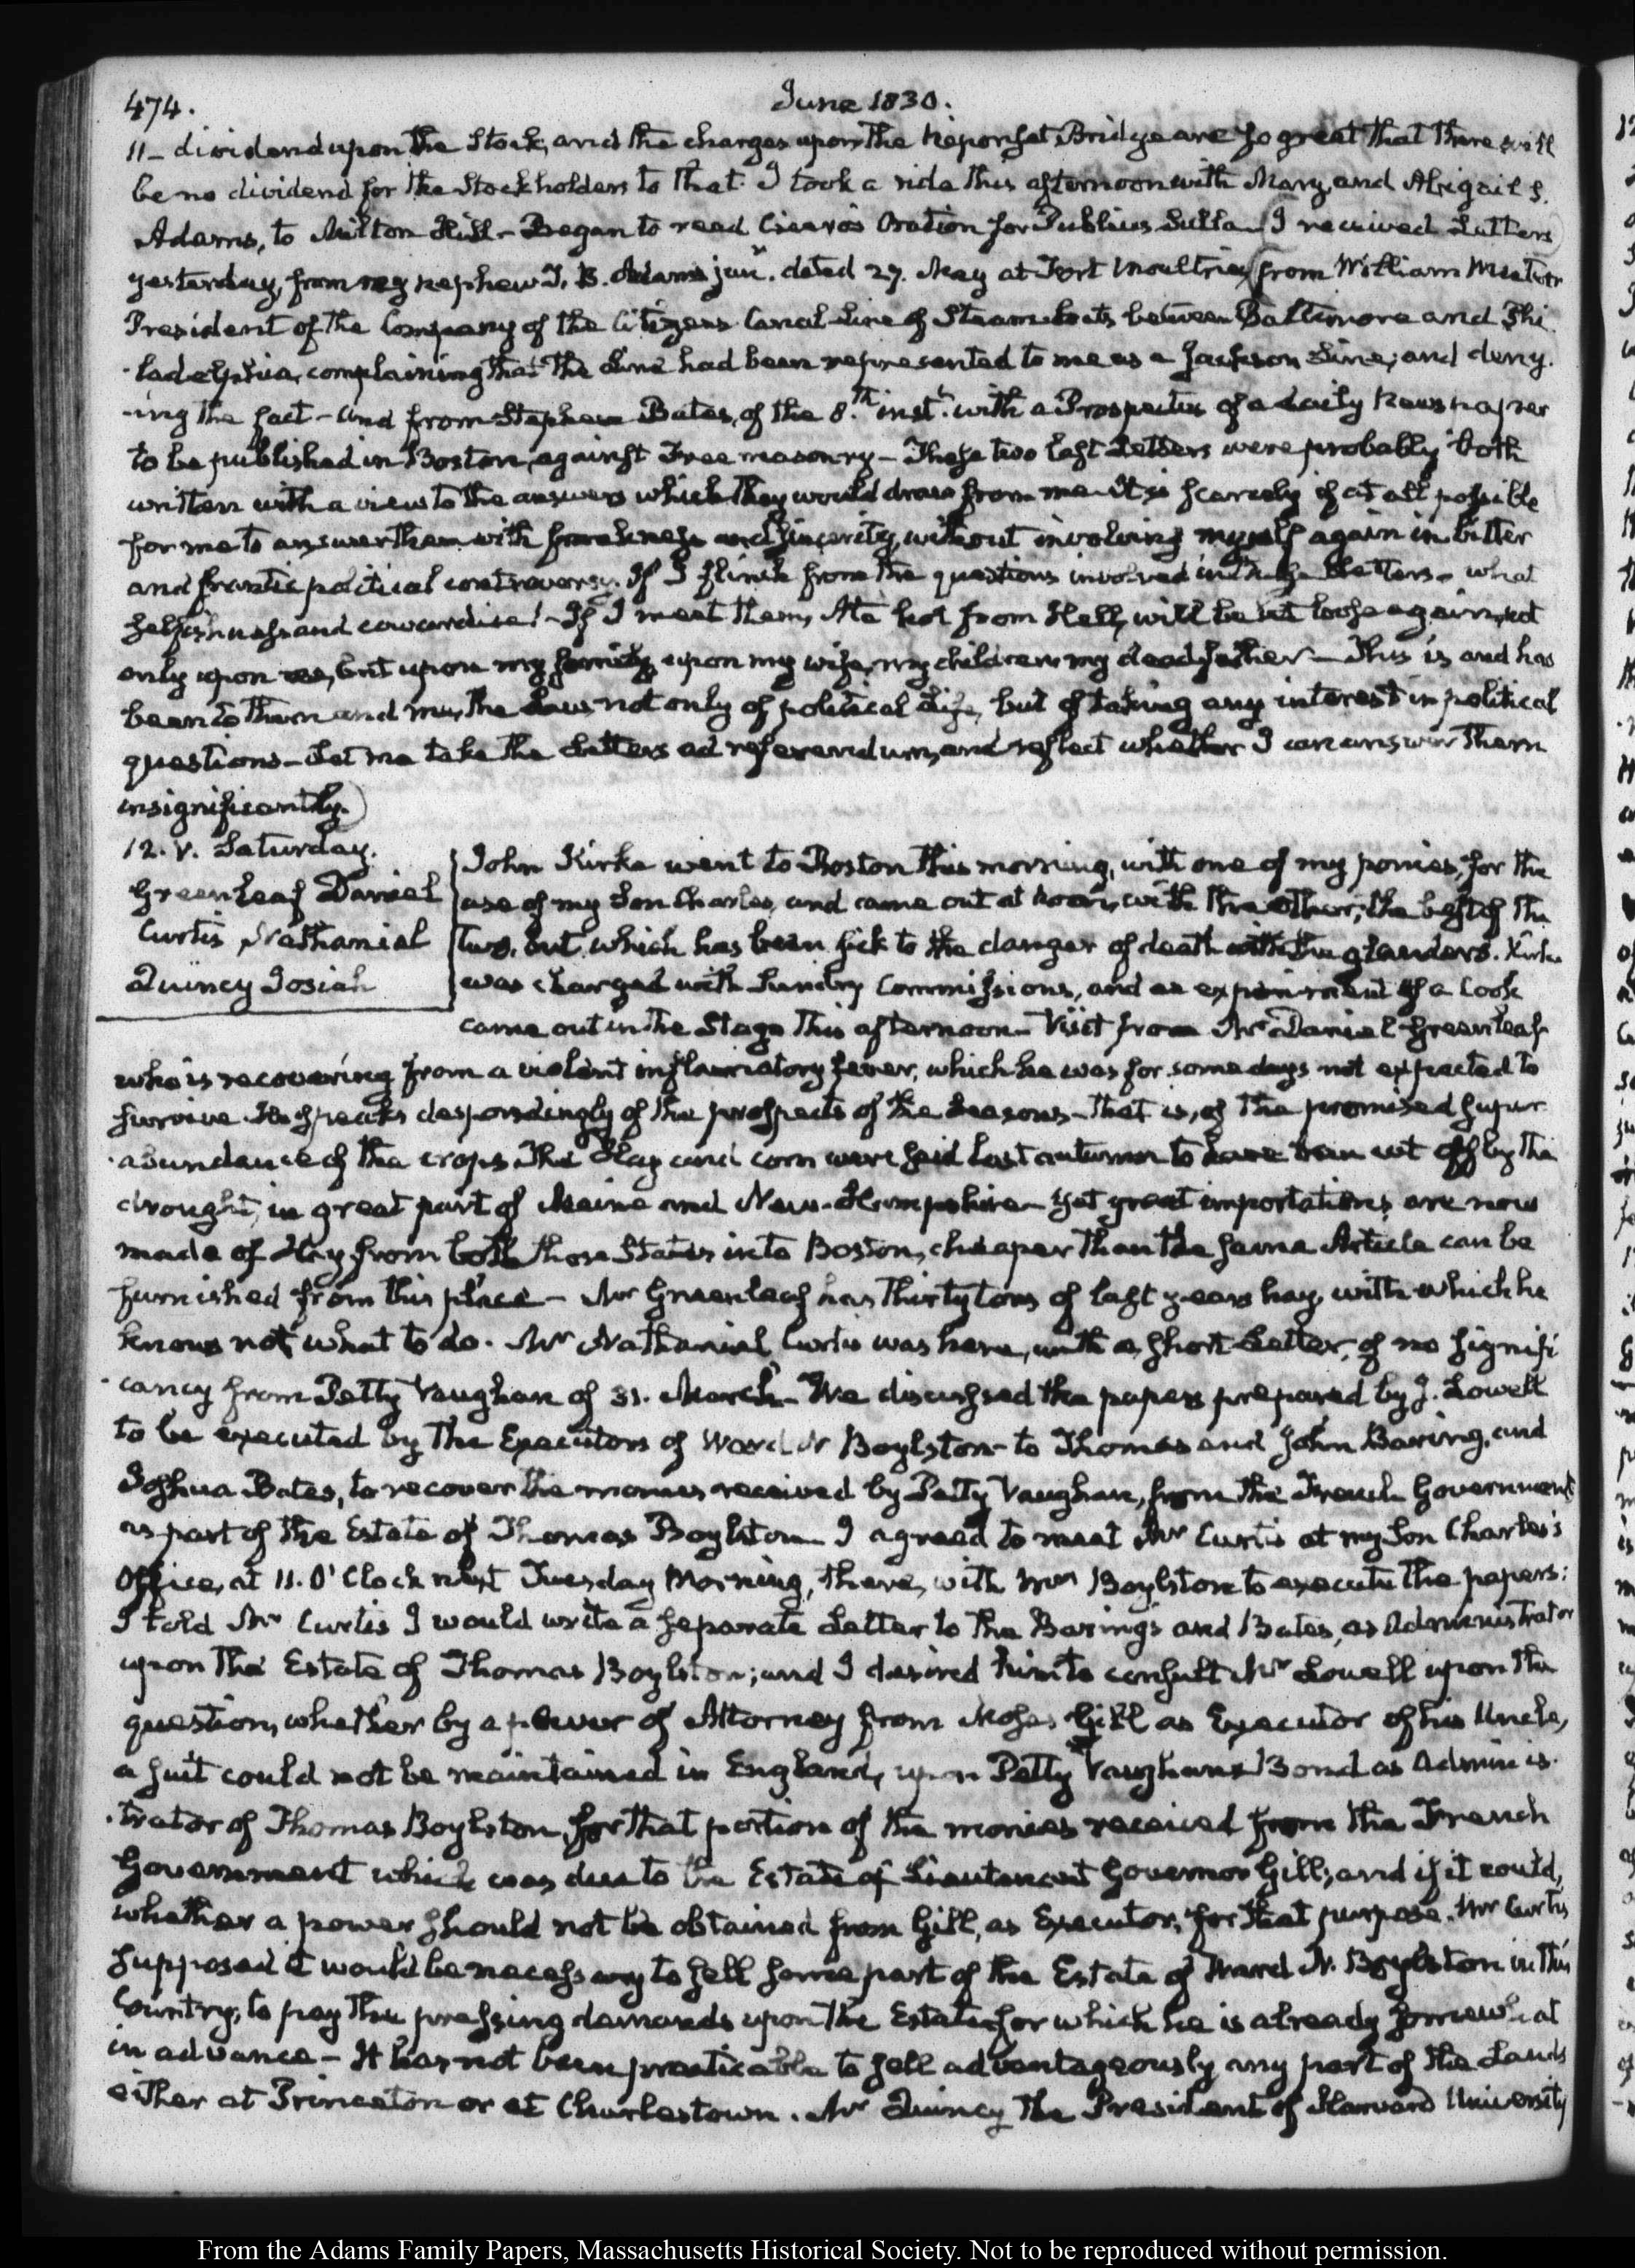 474.
June 1830.
11- dividend upon the Stock, and the charges upon the Neponset Bridge are so great that there will
be no dividend for the Stockholders to that. I took a ride this afternoon with Mary, and Abigail S.
Adams, to Milton Hill- Began to read Cicero's Oration for Publius Sulla- (I received Letters
yesterday, from my nephew J. B. Adams junr. dated 27. May at Fort Moultrie, from William
President of the Company of the Citizens Canal Line of Steam boats between Baltimore and Phi
-ladelphia, complaining that the Line had been represented to me as a Jackson Line, and deny-
-ing the fact- and from Stephen Bates, of the 8.th inst.t with a Prospectus of a daily Newspaper
to be published in Boston, against Free masonry- These two last Letters were probably both
written with a view to the answers which they would draw from me- It is scarcely if at all possible
for me to answer them with frankness and sincerity, without involving myself again in bitter
and frantic political controversy. If I flinch from the questions involved in these Letters- what
selfishness and cowardise!- If I meet them, Ate hot from Hell, will be let loose again, not
only upon me, but upon my family, upon my wife, my children my dead father- This is and has
been to them and me, the Law not only of political Life, but of taking any interest in political
questions- Let me take the Letters ad referendum, and reflect whether I can answer them
insignificantly.)
12. V. Saturday.
Greenleaf Daniel
Curtis Nathaniel
Quincy Josiah
John Kirke went to Boston this morning, with one of my ponies, for the
use of my Son Charles, and came out at Noon, with the other, the best of the
two, but which has been sick to the danger of death with the glanders. Kirke
was charged with Sundry Commissions, and an experiment of a Cook
came out in the Stage this afternoon- Visit from Mr Daniel Greenleaf
who is recovering from a violent inflammatory fever, which he was for some days not expected to
survive- He speaks despondingly of the prospects of the Season- that is, of the promised super
-abundance of the crops. The Hay and corn were said last autumn to have been cut off by the
drought, in great part of Maine and New-Hampshire- Yet great importations are now
made of Hay from both those States into Boston, cheaper than the same Article can be
furnished from this place- Mr Greenleaf has thirty tons of last years hay, with which he
knows not what to do. Mr Nathaniel Curtis was here, with a short Letter, of no signifi
-cancy from Petty Vaughan of 31. March- We discussed the papers prepared by J. Lowell
to be executed by the Executors of Ward N. Boylston- to Thomas and John Baring, and
Joshua Bates, to recover the monies received by Petty Vaughan, from the French Government
as part of the Estate of Thomas Boylston- I agreed to meet Mr Curtis at my Son Charles's
Office, at 11. O'Clock next Tuesday Morning, there, with Mrs Boylston to execute the papers:
I told Mr Curtis I would write a separate Letter to the Barings and Bates, as Administrator
upon the Estate of Thomas Boylston; and I desired him to consult Mr Lowell upon the
question, whether by a power of Attorney from Moses Gill as Executor of his Uncle,
a suit could not be maintained in England, upon Petty Vaughan's Bond as Adminis-
-trator of Thomas Boylston, for that portion of the monies received from the French
Government which was due to the Estate of Lieutenant Governor Gill, and if it could,
whether a power should not be obtained from Gill, as Executor, for that purpose. Mr Curtis
supposed it would be necessary to sell some part of the Estate of Ward N. Boylston in this
Country, to pay the pressing demands upon the Estate for which he is already somewhat
in advance- It has not been practicable to sell advantageously any part of the Lands
either at Princeton or at Charlestown. Mr Quincy the President of Harvard University
From the Adams Family Papers, Massachusetts Historical Society. Not to be reproduced without permission.